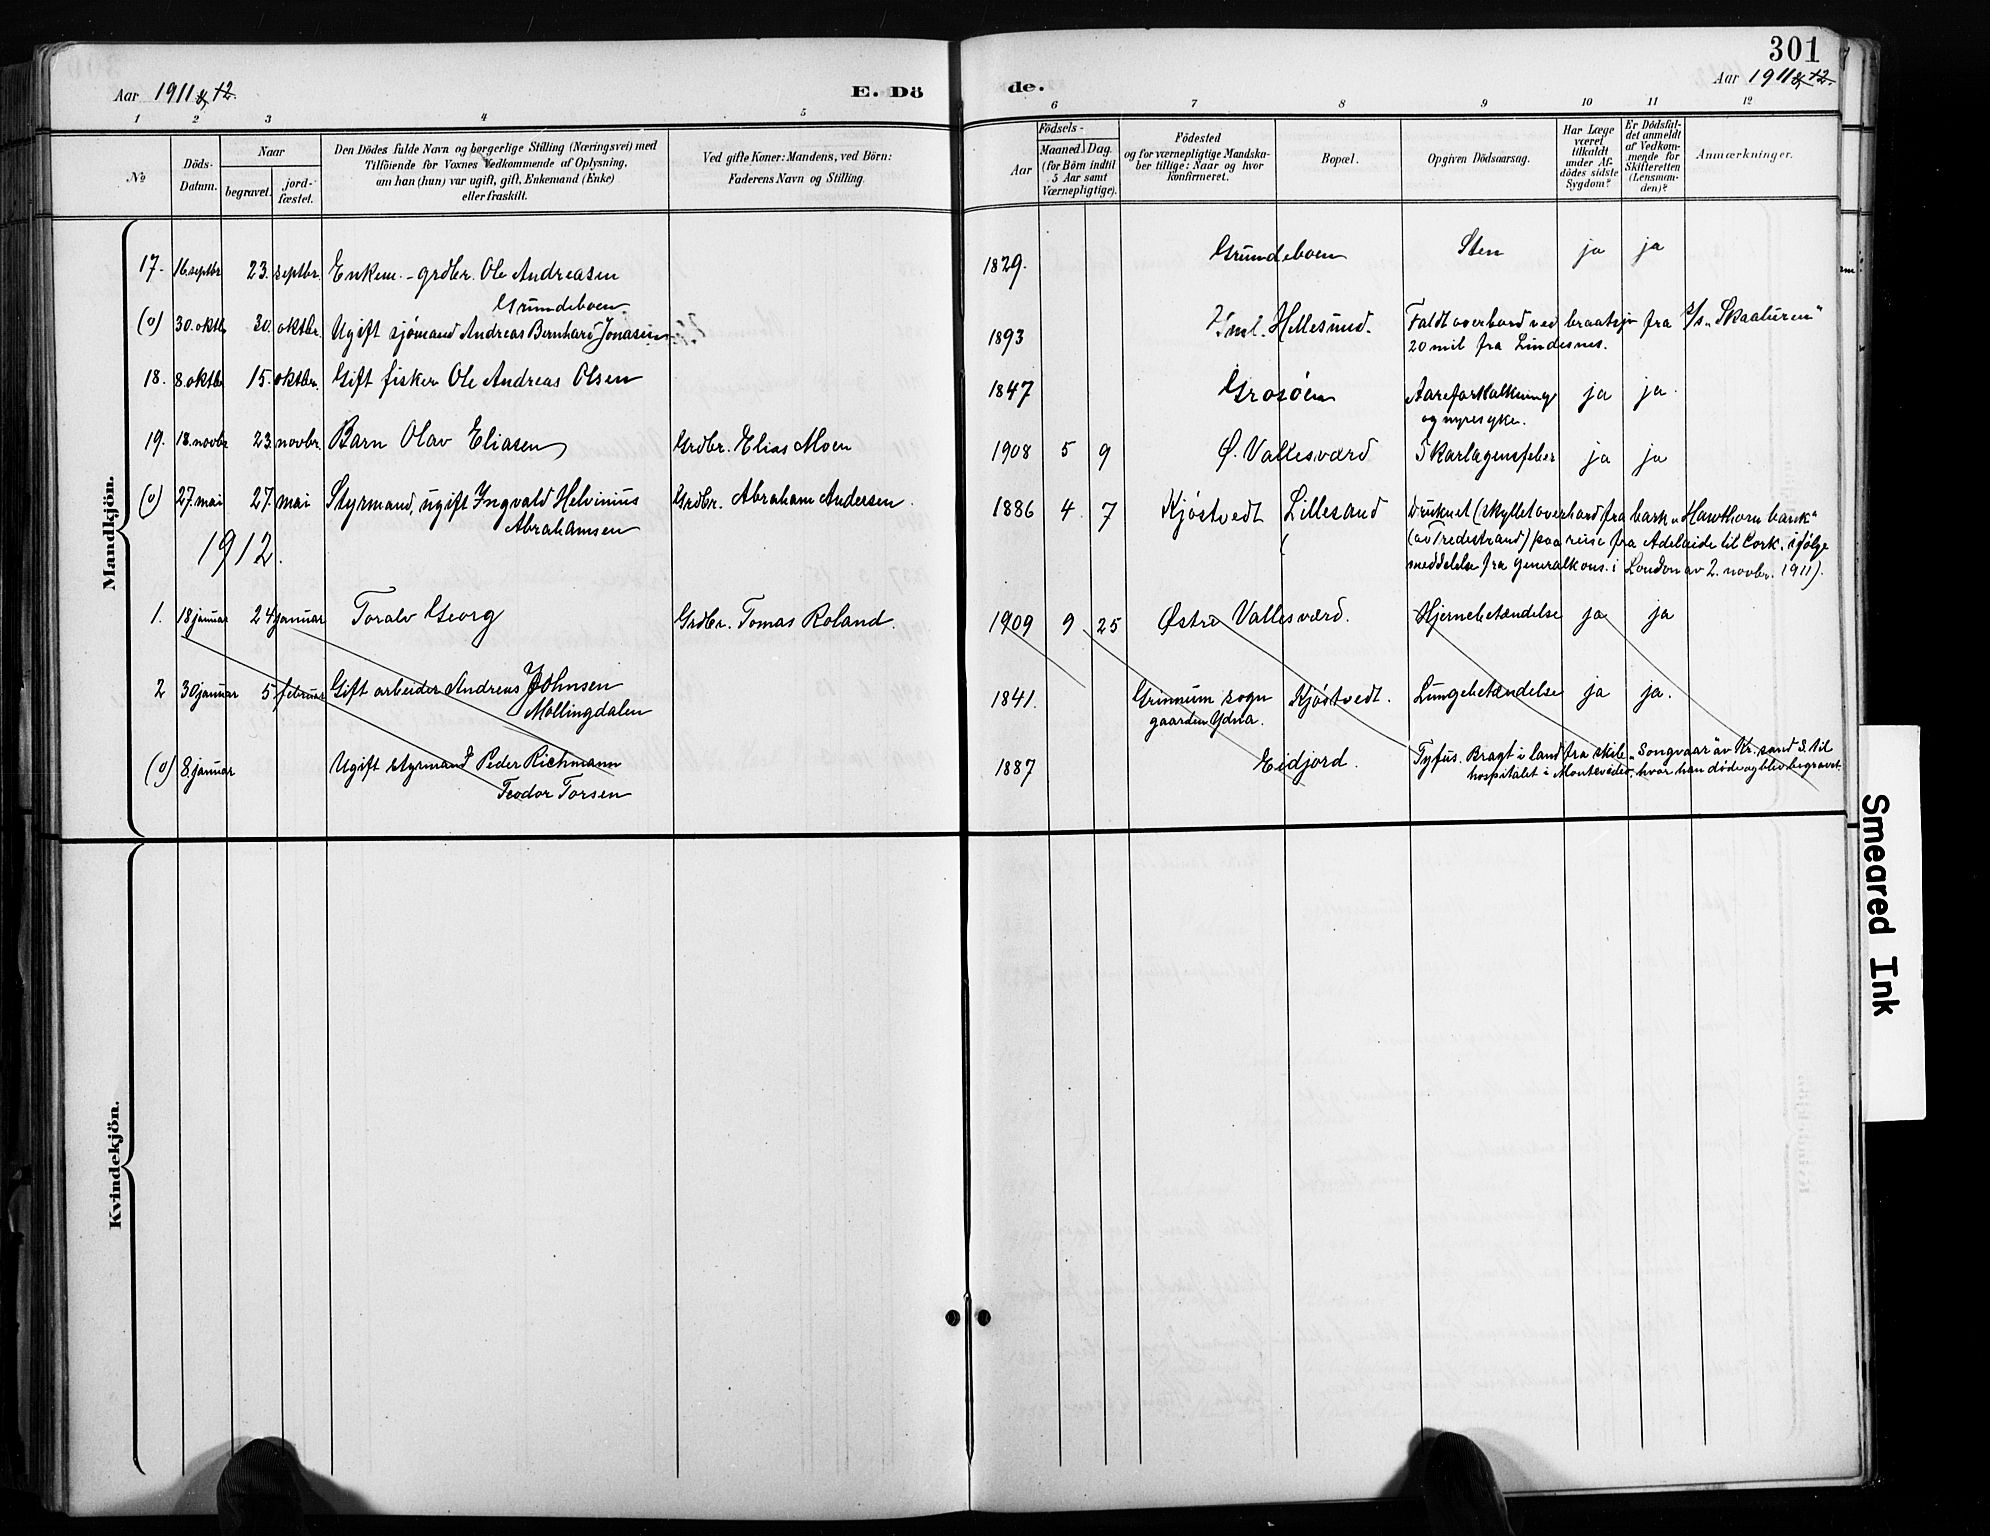 301
Aar 1911 & 12.
E. Dö
de.
Aar 1911 & 12.
1 2 3 4 5 6 7 8 9 10 11 12
No
Döds-
Datum.
Naar
begravet.
jord-
fæstet.
Den Dödes fulde Navn og borgerlige Stilling (Næringsvei) med
Tilföiende for Voxnes Vedkommende af Oplysning,
om han (hun) var ugift, gift, Enkemand (Enke)
eller fraskilt.
Ved gifte Koner: Mandens, ved Börn:
Faderens Navn og Stilling.
Födsels-
Aar
Maaned. Dag.
(for Börn indtil
5 Aar samt
Værnepligtige).
Födested
og for værnepligtige Mandska-
ber tillige: Naar og hvor
konfirmeret.
Bopæl.
Opgiven Dödsaarsag.
Har Læge
været
tilkaldt
under Af-
dödes sidste
Sygdom?
Er Dödsfal-
det anmeldt
af Vedkom-
mende for
Skifteretten
(Lensman-
den)?
Anmærkninger.
Mandkjön.
17. 16. septbr 23. septbr. Enkem. - grdbr. Ole Andreasen 1829. Grundeboen Sten ja ja
Grundeboen.
(0) 30. oktb 30. oktbr. Ugift sjømand Andreas Bernhard Jonasen 1893 Hellesund. Faldt overbord ved braatsjø fra s/s „Skaaluren"
20 mil fra Lindesnes.
18. 8. oktbr 15. oktbr. Gift fisker Ole Andreas Olsen 1847 Grosøen Aareforkalkning ja ja.
og nyresyke.
19. 18. novbr 23. novbr. Barn Olav Eliasen Grdbr. Elias Moen 1908 5 9 Ø. Vallesværd Skarlagensfeber ja ja
(0) 27. mai 27. mai Styrmand, ugift Yngvald Helvinius Grdbr. Abraham Andersen. 1886 4. 7 Kjøstvedt Lillesand Druknet (skyllet overbord fra bark „Hawthorn bank"
Abrahamsen (av Tvedestrand) paa reise fra Adelaide til Cork. ifølge
meddelelse fra generalkons. i London av 2. novbr. 1911).
1912.
1. 18 januar 24 januar Toralv Georg Grdbr. Tomas Roland. 1909 9 25 Østre Vallesværd. Hjernebetændelse ja ja
2 30 januar 5 februar Gift arbeider Andreas Johnsen 1841. Grimnum sogn Kjøstvedt. Lungebetændelse ja ja.
Møllingdalen gaarden Ydna.
(0) 8. januar Ugift styrmand Peder Richmann 1887 Eidjord. Tyfus. Bragt i land fra skibe „Songvaar" av Kr.sand S. til
Teodor Torsen hospitalet i Montevideo, hvor han døde og blev begravet.
Kvindekjön.
Smeared Ink